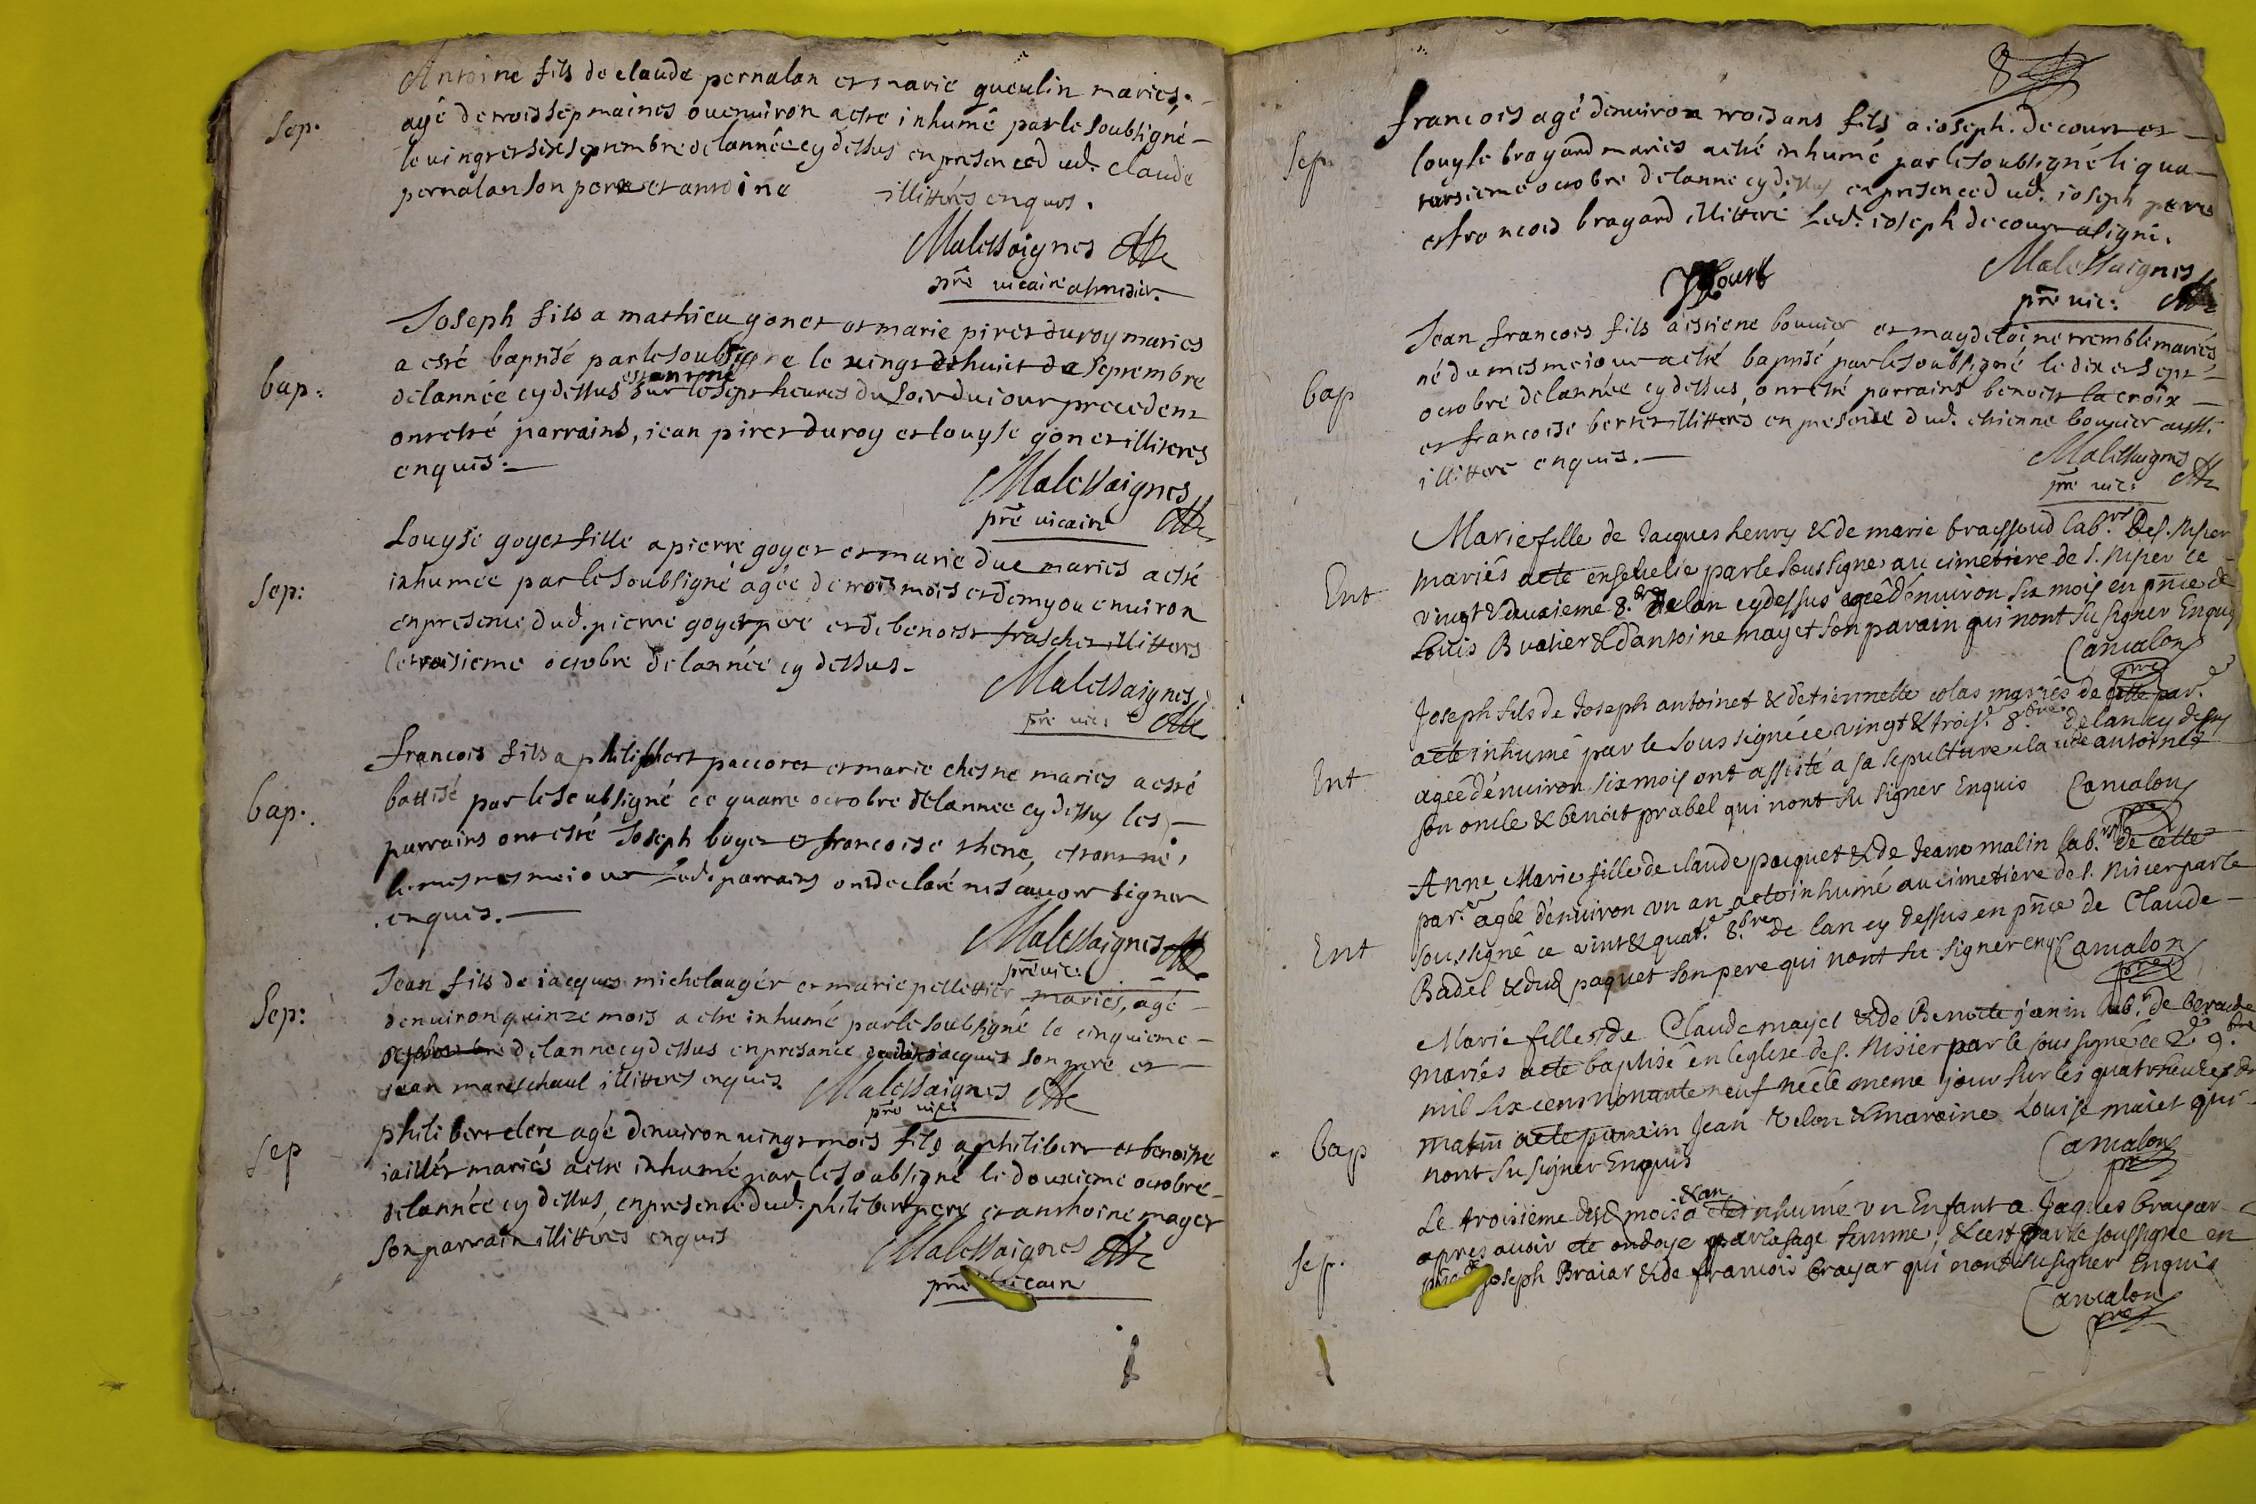 Antoine fils de claude pernalan et marie gueulin mariés
Sep.
agé de trois sepmaines ou environ a esté inhumé par le soubsigné
le vingt et six septembre de lannée cy dessus en presence dud. claude
pernalan son pere et antoine illittérés enquis.
Malessaignes
pre vicaire
Joseph fils a mathieu gonet et marie piret duroy mariés
bap:
a esté baptisé par le soubsigné le vingt et huict de septembre
est né
de lannée cy dessus sur le sept heures du soir du iour precedent
ont esté parrains, iean piret duroy et louyse gonet illiterés
enquis.
Malessaignes
pre vicaire
Louyse goyet fille a pierre goyet et marie duc mariés a esté
Sep:
inhumée par le soubsigné agée de trois mois et demy ou environ
en presence dud. pierre goyet pere et de benoist frascher illitterés
le troisieme octobre de lannée cy dessus.
Malessaignes
pre vic:
francois fils a philibert paccoret et marie chesne mariés a esté
bap.
battisé par le soubsigné ce quatre octobre de lannee cy dessus les
parrains ont esté Joseph boyer et francoise thene, estant né
le mesme iour Led. parrains ont declaré ne scavoir signer
enquis.
Malessaignes
pre vic:
Jean fils de iacques michelauger et marie pellettier mariés, agé
Sep:
denviron quinze mois a esté inhumé par le soubsigné le cinquieme
octobre de lannee cy dessus en presance iacques son pere et
jean mareschaul illitterés enquis
Malessaignes
pre vic:
philibert clere agé denviron vingt mois fils a philibert et benoiste
Sep
iailler mariés a esté inhumé par le soubsigné le douzieme octobre
de lannée cy dessus, en presence dud. philibert pere et anthoine mayet
son parrain illittérés enquis
Malessaignes
pre vicaire
8
francois agé denviron trois ans fils a ioseph decourt et
Sep.
louyse brayard mariés a esté inhumé par le soubsigné le qua
torsieme octobre de lanne cy dessus en presence dud. ioseph pere
et francois brayard illitteré Led. ioseph decourt a signé.
Malessaignes
pre vic:
Jean francois fils a estiene bouvier et magdeleine tremble mariés
né du mesme iour a esté baptisé par le soubsigné le dix et sept
bap
octobre de lannée cy dessus, ont esté parrains benoist la croix
et francoise bertet illitterés en presence dud. estienne bouvier aussi
illitteré enquis.
Malessaignes
pre vic:
Marie fille de Jacques henry & de marie brayssoud lab.rs de s. nisier
mariés a eté ensevelie par le soussigne au cimetiere de s. nisier ce
Ent
vingt & deuxieme 8.bre de lan cy dessus agée denviron six mois en pnce de
Louis Buatier & dantoine mayet son parain qui nont su signer Enquis
Camalon
pre
Joseph fils de Joseph antoinet & detiennette colas mariés de cette par.
a eté inhumé par le soussigné ce vingt & trois. 8.bre de lan cy dessus
Ent
agée d'environ six mois ont assisté a sa sepulture claude antoinet
son oncle & benoit prabel qui nont su signer Enquis
Camalon
pre
Anne Marie fille de claude pacquet & de Jeane malin lab.rs de cette
par. agée d'environ un an a eté inhumé au cimetiere de s. nisier par le
Ent
soussigné ce vint & quat.e 8.bre de lan cy dessus en pnce de Claude
Badel & dud paquet son pere qui nont su signer enq.
Camalon
pre
Marie fille de Claude mayet & de Benoite janin lab.r de
mariés a eté baptisé en leglise de s. Nisier par le soussigné ce 2.e 9.bre
mil six cens nonante neuf née le meme jour sur les quatr heures du
Bap
matin a eté parain Jean Velon & maraine Louise maiet qui
nont su signer Enquis
Camalon
pre
Le troisieme desd mois & an a eté inhumé un Enfant a Jaques brayar
apres avoir eté ondoyé par la sage femme, & cest par le soussigne en
Sep.
Joseph Braiar & de francois brayar qui nont su signer Enquis
Camalon
pre